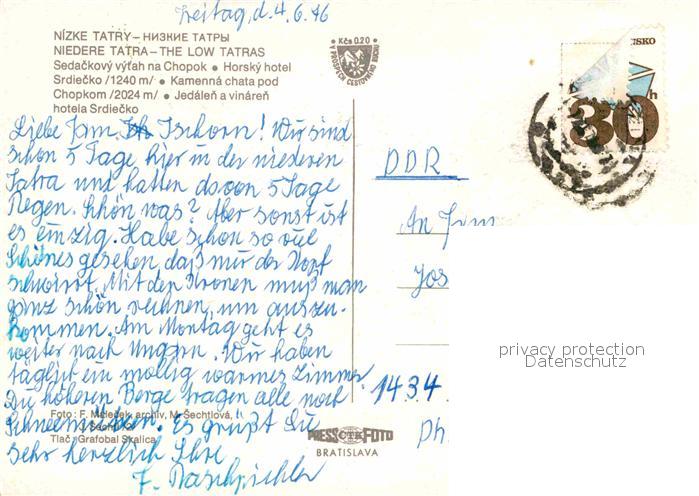 Freitag, d. 4.6.76
NÍZKE TATRY – НИЗКИЕ ТАТРЫ
NIEDERE TATRA – THE LOW TATRAS
Sedačkový výťah na Chopok ● Horský hotel
Srdiečko /1240 m/ ● Kamenná chata pod
Chopkom /2024 m/ ● Jedáleň a vináreň
hotela Srdiečko
Kčs 0.20
V PROSPECH CESTOVNÉHO RUCHU
SKO
30 h
Liebe Fam. Tschorn! Wir sind
schon 5 Tage hier in der niederen
Tatra und hatten davon 5 Tage
Regen. Schön was? Aber sonst ist
es einzig. Habe schon so viel
Schönes gesehen daß mir der Kopf
schwirrt. Mit den Kronen muß man
ganz schön rechnen, um auszu-
kommen. Am Montag geht es
weiter nach Ungarn. Wir haben
täglich ein mollig warmes Zimmer.
Die höheren Berge tragen alle noch
Schneemützen. Es grüßt Sie
sehr herzlich Ihre
F.
DDR
An Fam
Jos
1434
Foto: F. archív, M. Šechtlová,
Tlač: Grafobal Skalica
PRESSFOTO
ČTK
BRATISLAVA
privacy protection
Datenschutz